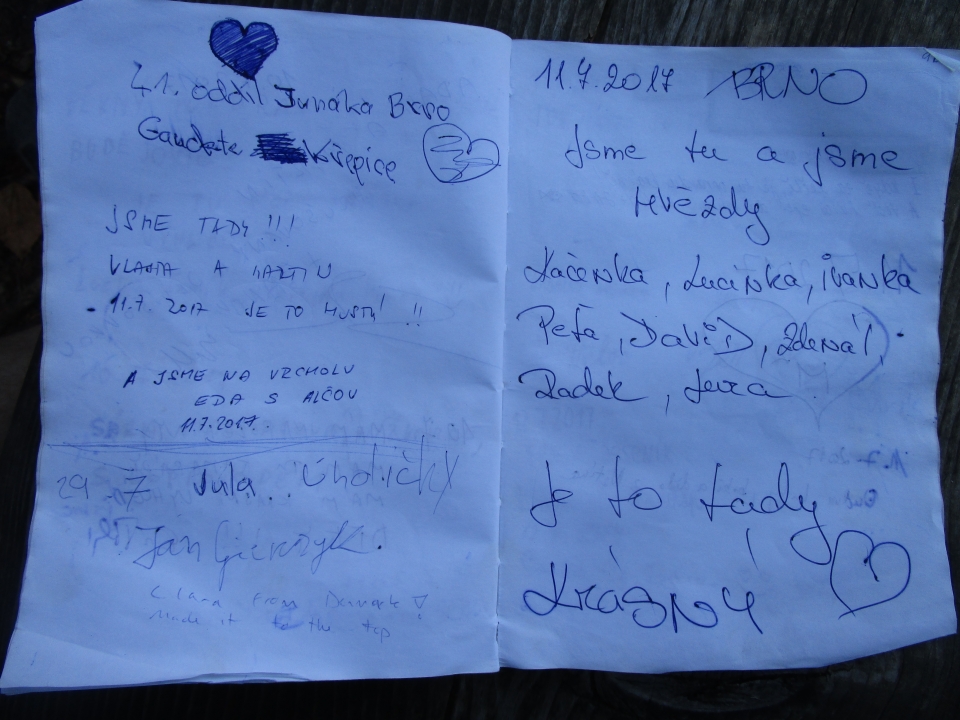 41. oddíl Junáka Brno
Gaudete Křepice
JSME TADY !!!
VLASTA A MARTIN
11.7. 2017 JE TO HUSTÝ !!
A JSME NA VRCHOLU
EDA S ALČOU
11.7.2017.
29.7 Jula.. Úholičky
Jan
Clara from Danmark
made it to the top
11.7.2017 BRNO
Jsme tu a jsme
Hvězdy
Kačenka, Lucinka, ivanka
Peťa, DaviD, Zdenál,
Radek, Jura
Je to tady
KrásNý